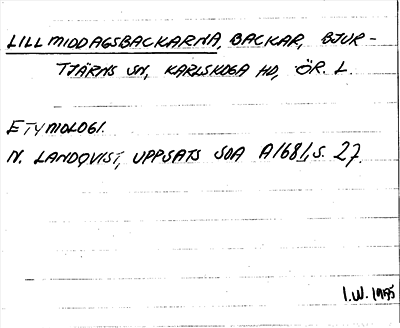 LILLMIDDAGSBACKARNA, BACKAR, BJUR-
TJÄRNS SN, KARLSKOGA HD, ÖR. L.
ETYMOLOGI.
N. LANDQVIST, UPPSATS SOA A1681, S. 27.
I.W. 1955